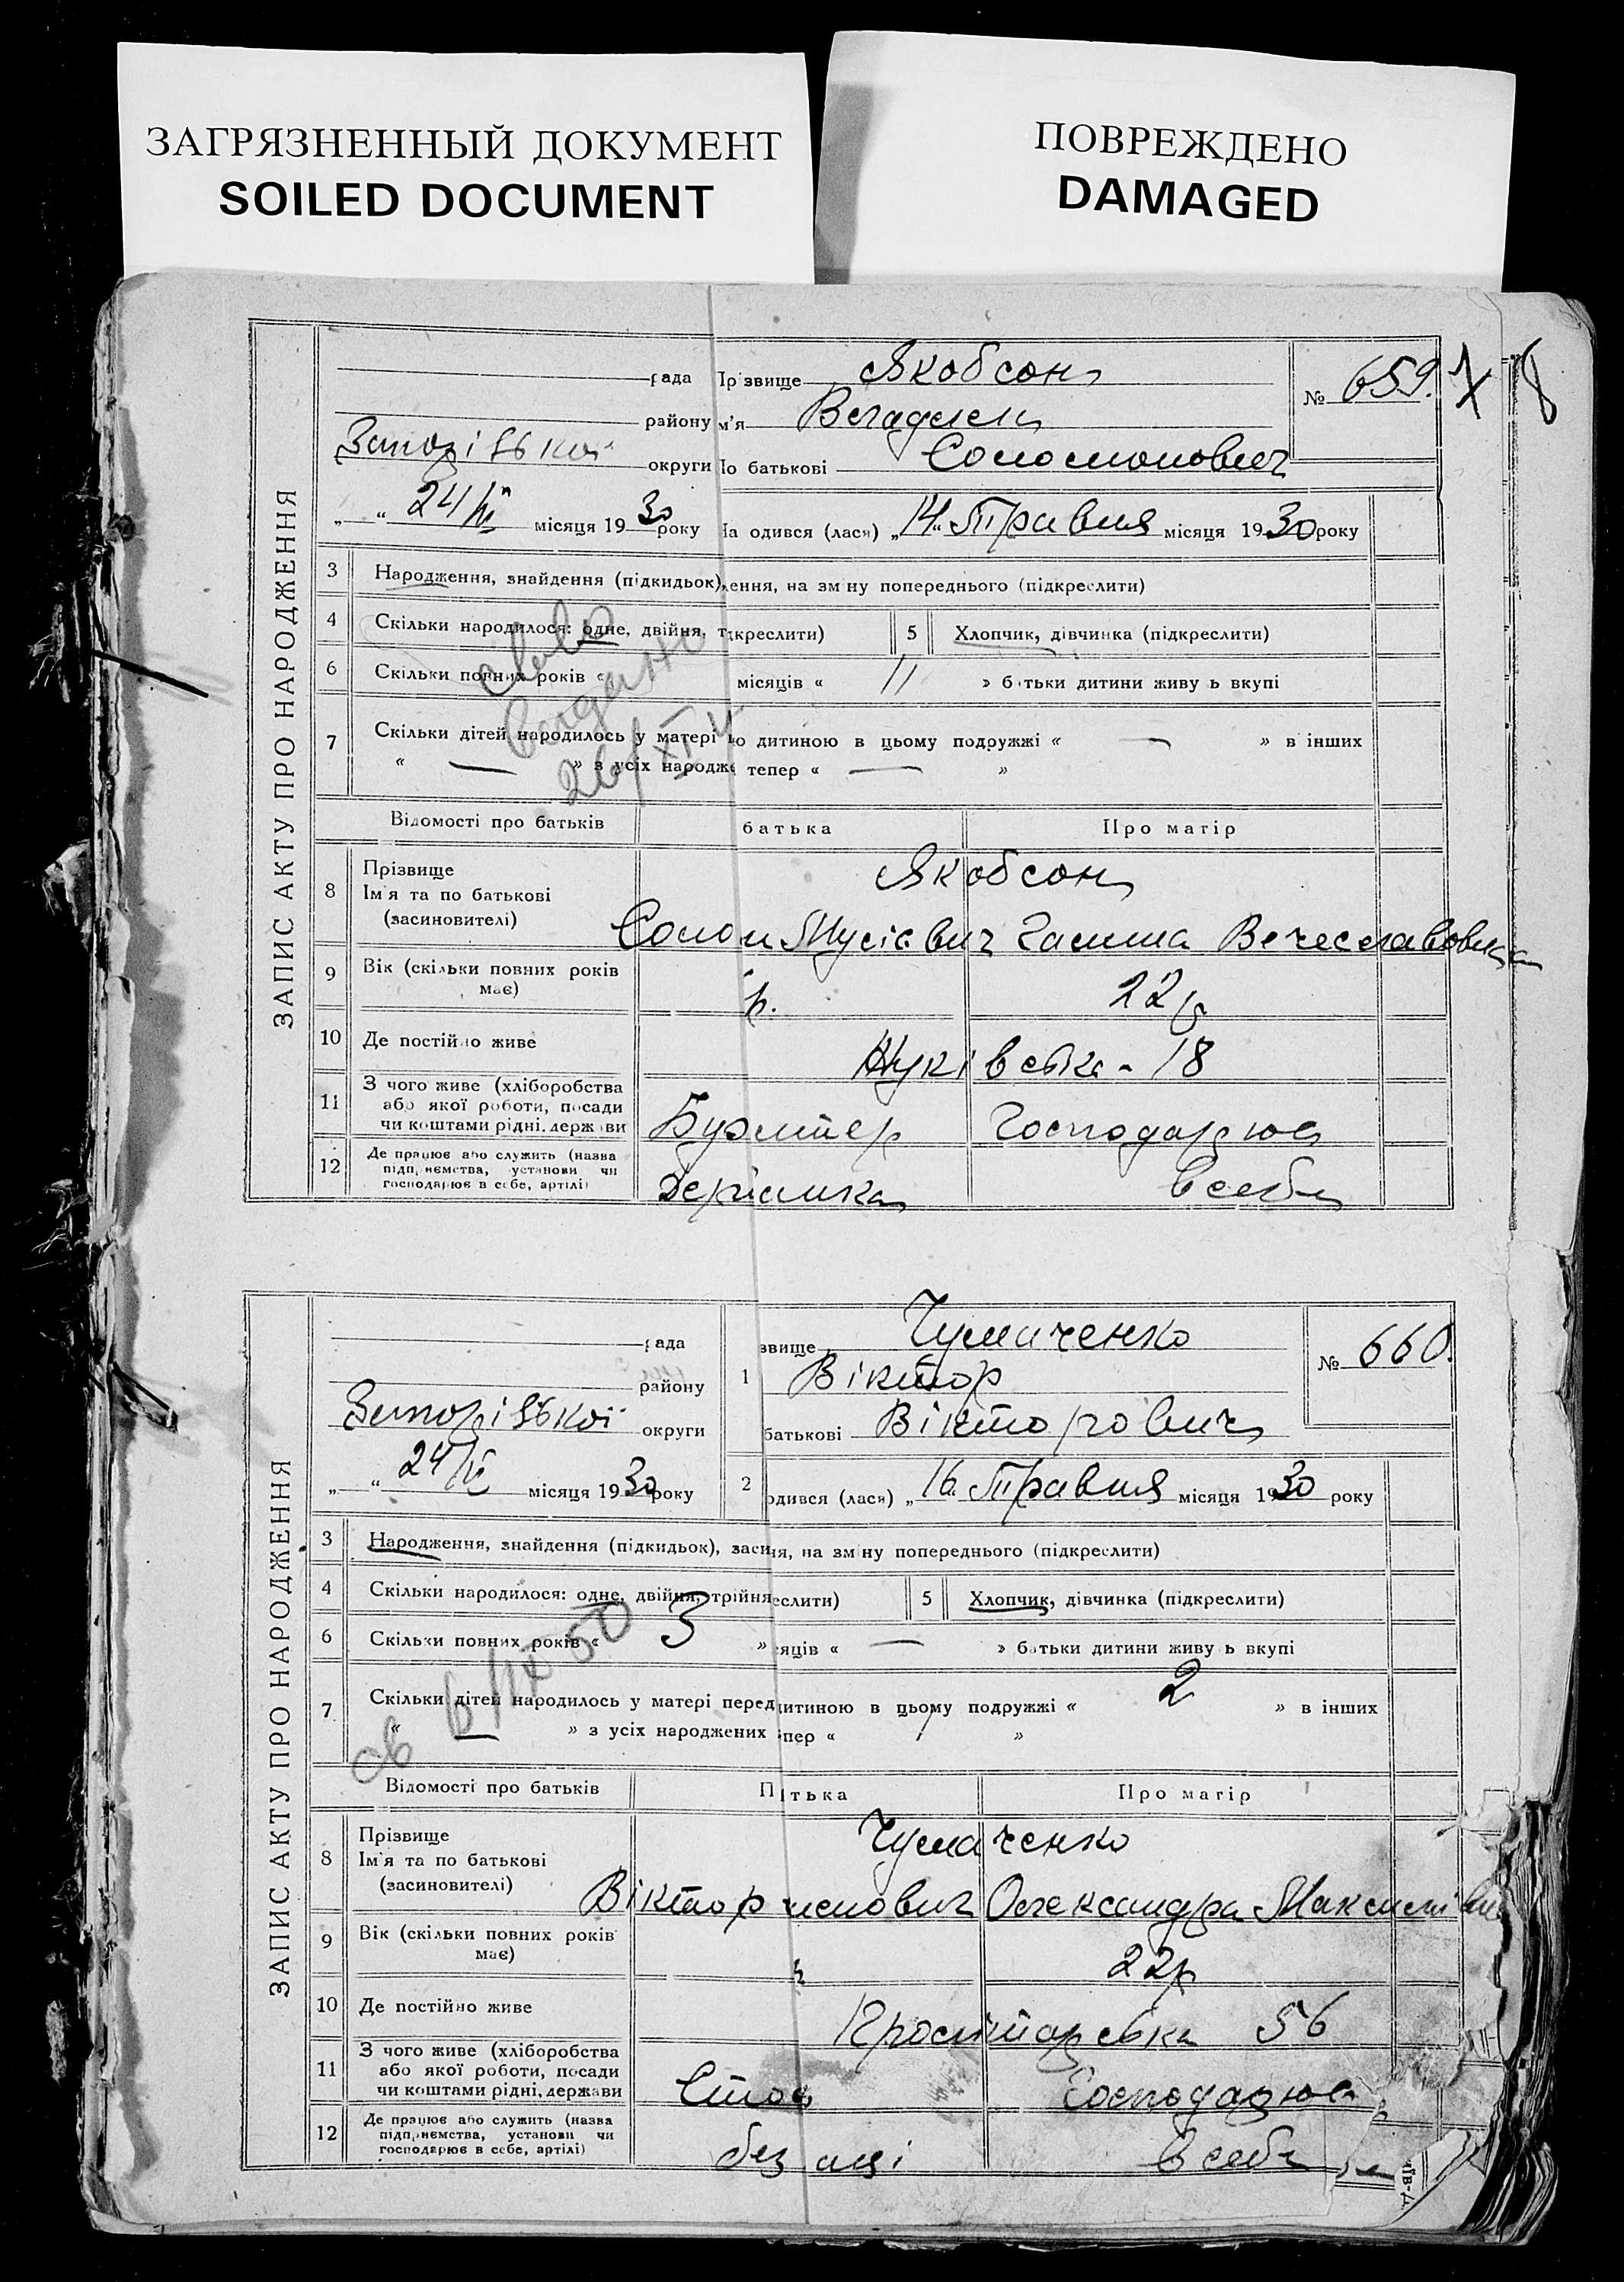 ЗАГРЯЗНЕННЫЙ ДОКУМЕНТ
SOILED DOCUMENT
ПОВРЕЖДЕНО
DAMAGED
ЗАПИС АКТУ ПРО НАРОДЖЕННЯ
рада
району
округи
„ “ 24/VI місяця 1930 року
Прізвище Якобсон
м'я
о батькові Соломонович
№ 659.
одився (лася) „14“ Травня місяця 1930 року
3 Народження, знайдення (підкидьок), ення, на зміну попереднього (підкреслити)
4 Скільки народилося: одне, двійня, т креслити) 5 Хлопчик, дівчинка (підкреслити)
6 Скільки повних років « місяців « 11 » батьки дитини живуть вкупі
7 Скільки дітей народилось у матері ю дитиною в цьому подружжі « — » в інших
« — » з усіх народже тепер « — »
26/XI
Відомості про батьків батька Про матір
8 Прізвище Якобсон
Ім'я та по батькові
(засиновителі)
Солом Мусієвич Галина Вечеславовна
9 Вік (скільки повних років має) р. 22 р
10 Де постійно живе 18
11 З чого живе (хліборобства
або якої роботи, посади
чи коштами рідні, держави
Бухгалтер Господарює
12 Де працює або служить (назва
підприємства, установи чи
господарює в себе, артілі)
в себе
ЗАПИС АКТУ ПРО НАРОДЖЕННЯ
рада
району
округи
„ “ 24/VI місяця 1930 року
1 звище Чумаченко
Віктор
батькові Вікторович
№ 660.
2 одився (лася) „16 Травня місяця 1930 року
3 Народження, знайдення (підкидьок), заси ня, на зміну попереднього (підкреслити)
4 Скільки народилося: одне, двійня, трійня еслити) 5 Хлопчик, дівчинка (підкреслити)
6 Скільки повних років « 3 » сяців « — » батьки дитини живуть вкупі
7 Скільки дітей народилось у матері перед итиною в цьому подружжі « 2 » в інших
« — » з усіх народжених пер « 1 »
Відомості про батьків П тька Про матір
8 Прізвище Чумаченко
Ім'я та по батькові
(засиновителі)
Віктор Олександра
9 Вік (скільки повних років має) 22 р
10 Де постійно живе 56
11 З чого живе (хліборобства
або якої роботи, посади
чи коштами рідні, держави
Господарює
12 Де працює або служить (назва
підприємства, установи чи
господарює в себе, артілі)
в себе